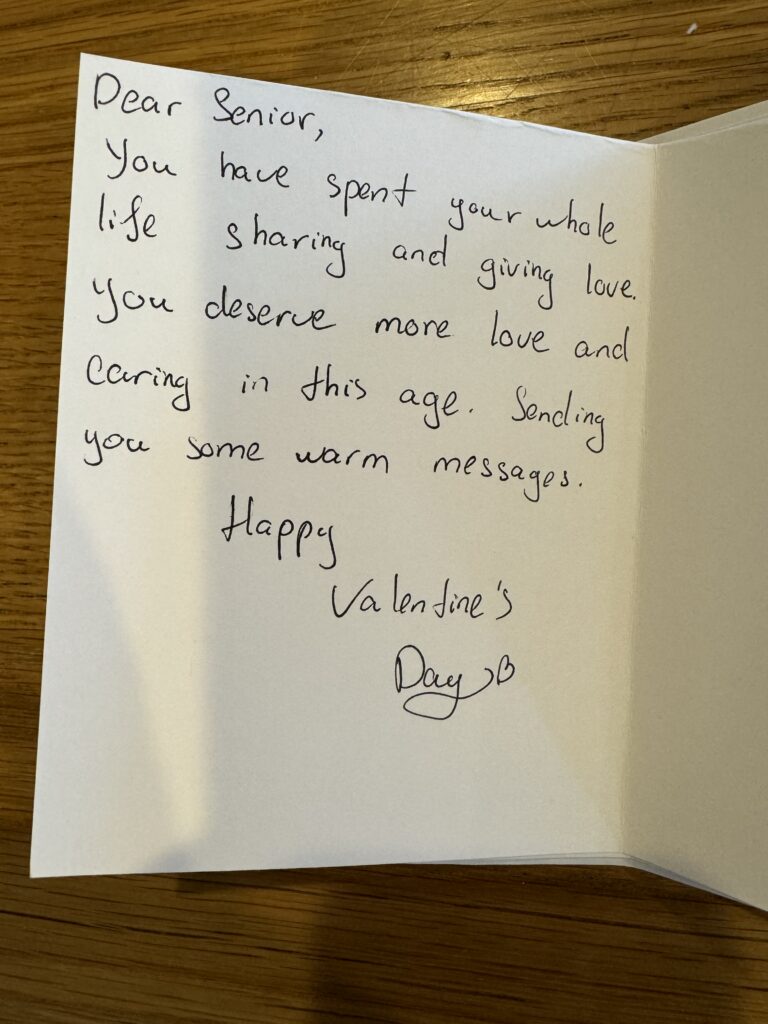 Dear Senior,
You have spent your whole
life sharing and giving love.
You deserve more love and
caring in this age. Sending
you some warm messages.
Happy
Valentine's
Day